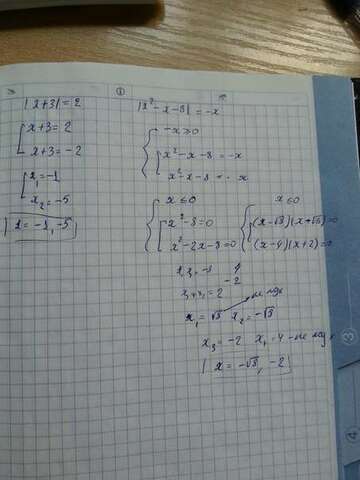 |x+3| = 2
x+3 = 2
x+3 = -2
x₁ = -1
x₂ = -5
x = -1, -5
|x²-x-8| = -x
-x ≥ 0
x²-x-8 = -x
x²-x-8 = x
x ≤ 0
x²-8 = 0
x²-2x-8 = 0
x ≤ 0
(x-√8)(x+√8) = 0
(x-4)(x+2) = 0
4
-2
= 2
x₁ = √8 x₂ = -√8
x₃ = -2 x₄ = 4 - не подх
x = -√8, -2
3
4